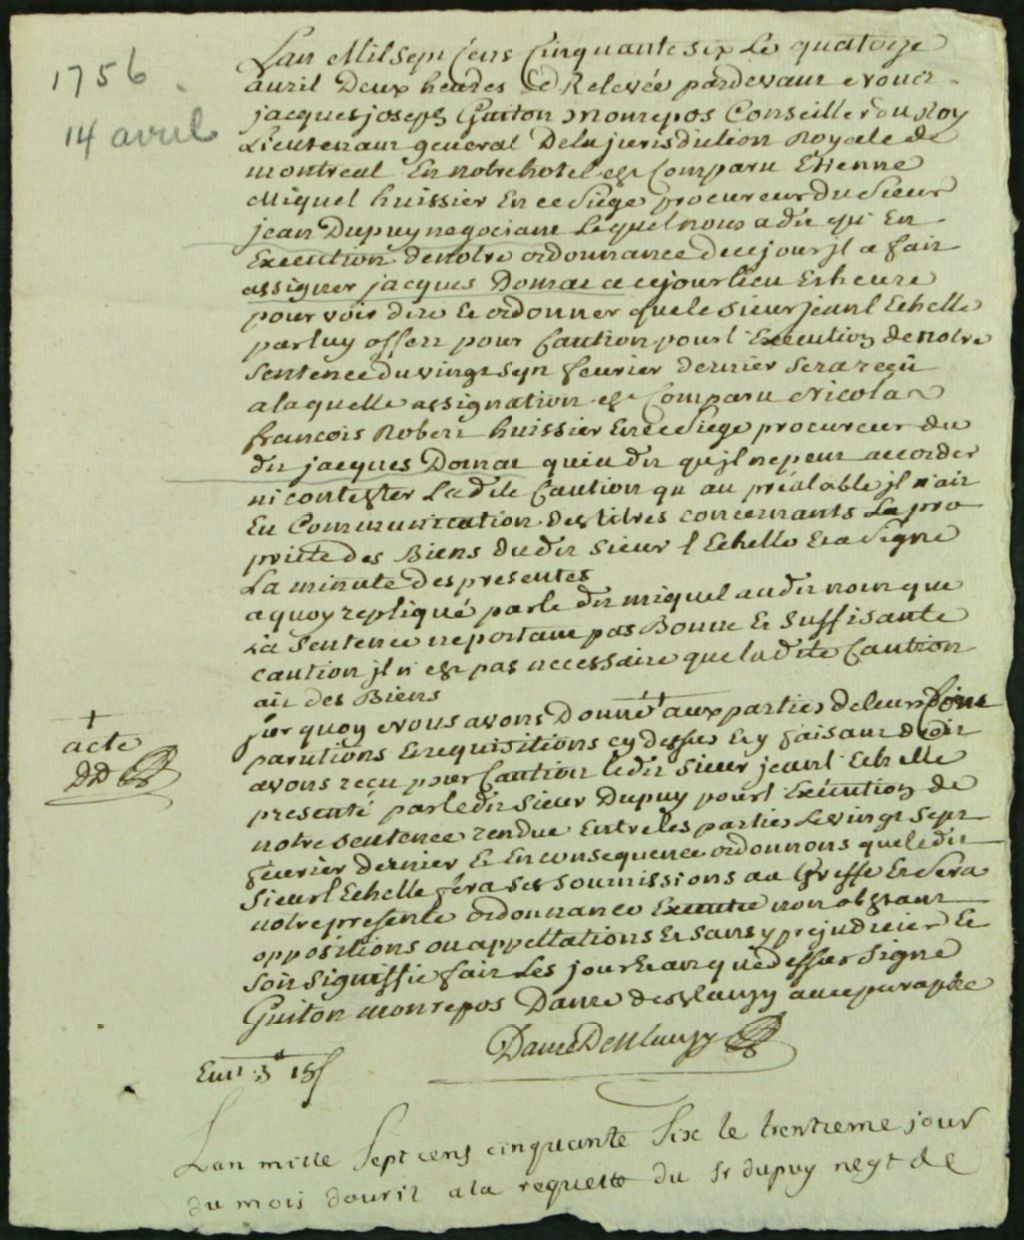 1756
14 avril
Lan Mil Sept Cens Cinquante Six Le quatorze
avril Deux heures de Relevée pardevant Nous
jacques joseph Guiton Monrepos Conseiller du Roy
Lieutenant general Dela jurisdiction Royale de
montreal En notre hotel est Comparu Etienne
Miguel huissier En ce Siege procureur du Sieur
jean Dupuy negociant Lequel nous a dit qu'En
Execution de notre ordonnance de ce jour jl a fait
assigner jacques Domae a ce jour lieu Et heure
pour voir dire Et ordonner que le Sieur jean l'Echelle
par luy offert pour Caution pour l'Execution de notre
Sentence du vingt Sept fevrier dernier Sera reçû
a laquelle assignation est Comparu Nicolas
francois Robert huissier En ce Siege procureur du
dit jacques Domae qui a dit qu'jl ne peut accorder
ni contester La dite Caution qu'au préalable jl n'ait
Eu Communication des titres concernants La pro
prieté des Biens du dit Sieur l'Echelle Et a Signé
La minute des presentes
a quoy repliqué par le dit miguel au dit nom que
La Sentence ne portant pas Bonne Et Suffisante
caution jl n'est pas necessaire que la dite Caution
ait des Biens
Sur quoy Nous avons Donné + aux parties de leurs Com
parutions Et requisitions cy dessus Et y faisant droit
avons reçu pour Caution le dit Sieur jean l'Echelle
presenté par le dit Sieur Dupuy pour l'Execution de
notre Sentence rendue Entre les parties Le vingt Sept
fevrier dernier Et En consequence ordonnons que le dit
Sieur l'Echelle fera Ses Soumissions au Greffe Et Sera
notre presente ordonnance Executée non obstant
oppositions ou appellations Et Sans y prejudicier Et
Soit Signiffié fait Les jour Et an que dessus Signé
Guiton Monrepos Danré deblanzy avec paraphe
+
acte
DD
Danré Deblanzy
Emt 3 15s
Lan mille Sept cens cinquante Six le trentieme jour
du mois davril a la requeste du Sr dupuy negt de